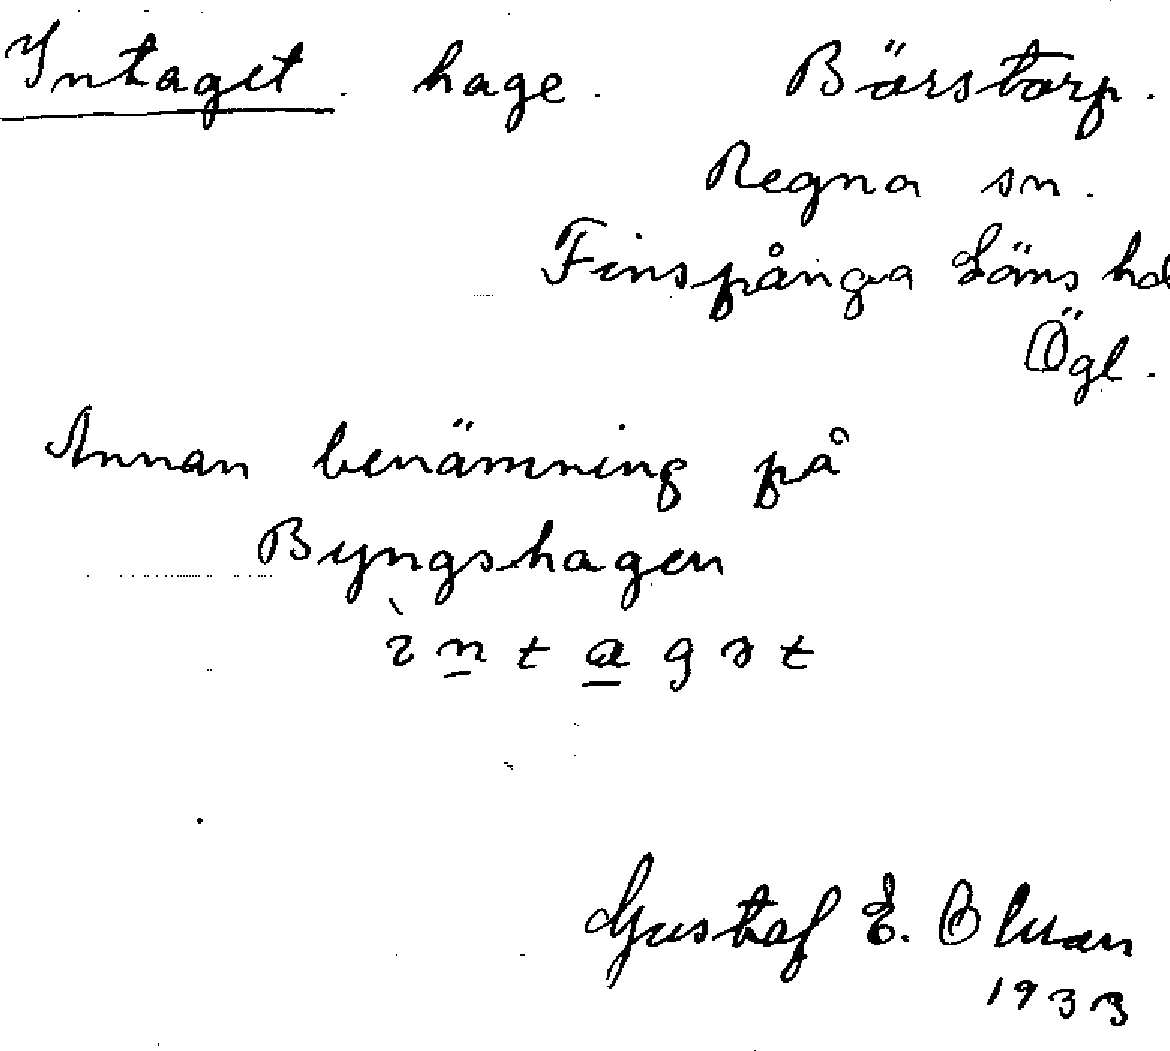 Intaget. hage. Bärstorp.
Regna sn.
Finspånga Läns hd
Ögl.
Annan benämning på
Byngshagen
ìntagət
Gustaf E. Olsson
1933